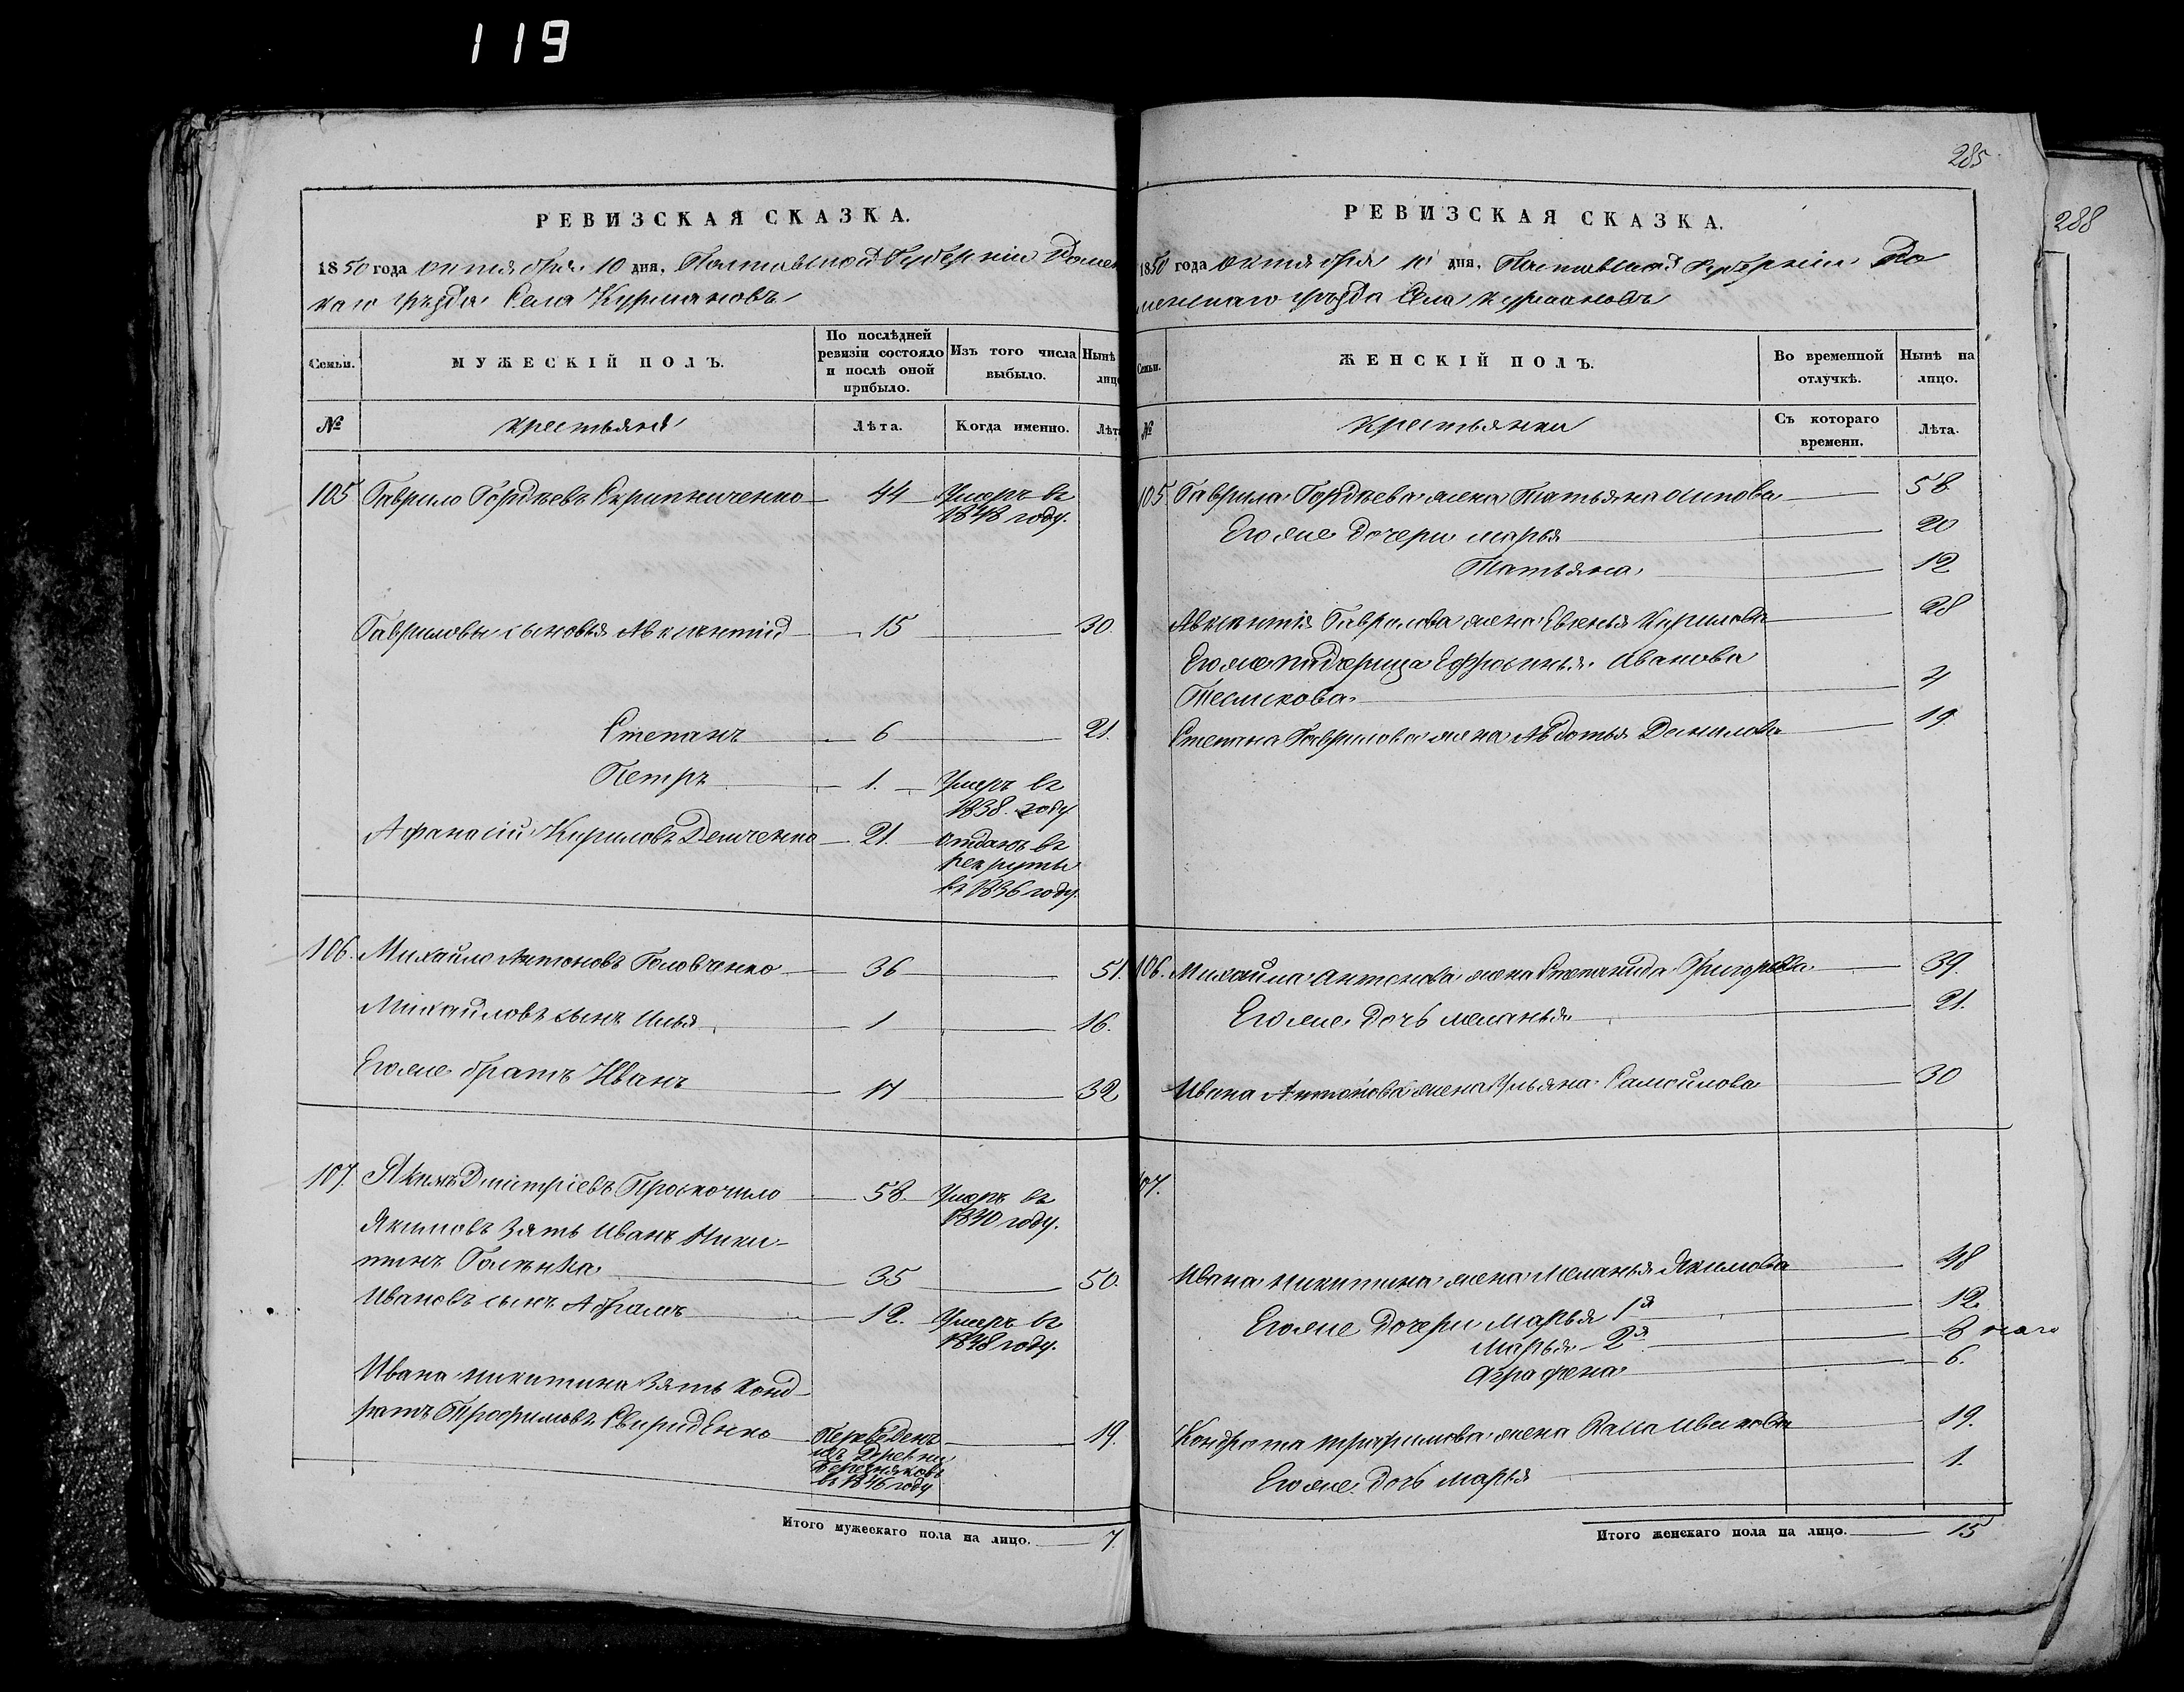 119
РЕВИЗСКАЯ СКАЗКА.
1850 года октября 10 дня, Полтавской Губернiи Ромен
каго уѣзда Села Курмановъ
Семьи.
МУЖЕСКIЙ ПОЛЪ.
По послѣдней ревизiи состояло и послѣ оной прибыло.
Изъ того числа выбыло.
Нынѣ
лицо
№
крестьяне
Лѣта.
Когда именно.
Лѣта
105 Гаврило Гордѣевъ Скрипниченко 44 Умеръ въ
1848 году.
Гавриловы сыновья Авксентiй 15 30.
Степанъ 6 21.
Петръ 1. Умеръ въ
1838 году
Афанасiй Кириловъ Демченко 21. Отданъ въ
рекруты
въ 1836 году.
106. Михайло Антоновъ Головченко 36 51.
Михайловъ сынъ Илья 1 16.
Егоже братъ Иванъ 17 32
107. Якимъ Дмитрiевъ Проскочило 58. Умеръ въ
1840 году.
Якимовъ зять Иванъ Ники-
тинъ Галѣнка 35 50.
Ивановъ сынъ Абрамъ 12. Умеръ въ
1848 году.
Ивана Никитина зять Конд-
ратъ Трофимовъ Свириденко Переведенъ 19.
изъ Древни
въ 1846 году
Итого мужескаго пола на лицо. 7.
285
РЕВИЗСКАЯ СКАЗКА.
1850 года октября 10 дня, Полтавской Губернiи Ро
менскаго уѣзда Села Курмановъ
Семьи.
ЖЕНСКIЙ ПОЛЪ.
Во временной отлучкѣ.
Нынѣ на лицо.
№
крестьянки
Съ котораго времени.
Лѣта.
105. Гаврила Гордѣева жена Татьяна Осипова 58
Егоже дочери Марья 20
Татьяна 12
Авксентiя Гаврилова жена Евгенья Кирилова 28
Егоже падчерица Ефросинья Иванова
4
Степана Гаврилова жена Авдотья Данилова 19.
106. Михайла Антонова жена Степанида Григорьева 39.
Егоже дочь Меланья 21.
Ивана Антонова жена Ульяна Самойлова 30
107.
Ивана Никитина жена Меланья Якимова 48
Егоже дочери Марья 1я 12
Марья 2я 8
Аграфена 6.
Кондрата Трофимова жена Ивановна 19.
Егоже дочь Марья 1.
Итого женскаго пола на лицо. 15
288